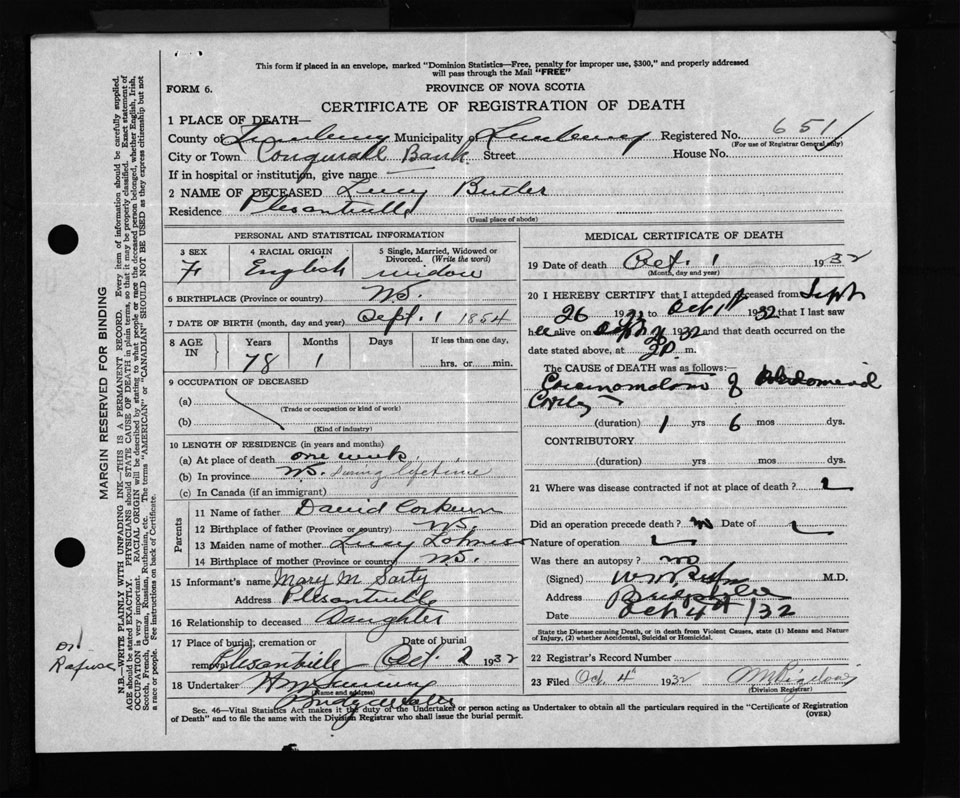 This form if placed in an envelope, marked "Dominion Statistics—Free, penalty for improper use, $300," and properly addressed
will pass through the Mail "FREE"
FORM 6.
PROVINCE OF NOVA SCOTIA
CERTIFICATE OF REGISTRATION OF DEATH
1 PLACE OF DEATH—
County of Lunenburg Municipality of Lunenburg Registered No. 651
(For use of Registrar General only)
City or Town Conquerall Bank Street House No.
If in hospital or institution, give name
2 NAME OF DECEASED Lucy Butler
Residence Plesantville
(Usual place of abode)
PERSONAL AND STATISTICAL INFORMATION
3 SEX 4 RACIAL ORIGIN 5 Single, Married, Widowed or
Divorced. (Write the word)
F English widow
6 BIRTHPLACE (Province or country) NS.
7 DATE OF BIRTH (month, day and year) Sept. 1 1854
8 AGE IN Years Months Days If less than one day,
78 1 hrs. or min.
9 OCCUPATION OF DECEASED
(a)
(Trade or occupation or kind of work)
(b)
(Kind of industry)
10 LENGTH OF RESIDENCE (in years and months)
(a) At place of death one week
(b) In province NS. During lifetime
(c) In Canada (if an immigrant)
Parents
11 Name of father David Corkum
12 Birthplace of father (Province or country) NS.
13 Maiden name of mother Lucy
14 Birthplace of mother (Province or country) NS.
15 Informant's name Mary M Sarty
Address Plesantville
16 Relationship to deceased Daughter
17 Place of burial, cremation or Date of burial
removal Plesantville Oct. 2 1932
18 Undertaker
(Name and address)
Bridgewater
MEDICAL CERTIFICATE OF DEATH
19 Date of death Oct. 1 1932
(Month, day and year)
20 I HEREBY CERTIFY that I attended deceased from Sept
26 1932 to Oct 1st 1932 that I last saw
her alive on 1932 and that death occurred on the
date stated above, at 2 P. m.
The CAUSE of DEATH was as follows:—
of Abdominal
(duration) 1 yrs 6 mos dys.
CONTRIBUTORY
(duration) yrs mos dys.
21 Where was disease contracted if not at place of death?
Did an operation precede death? no Date of
Nature of operation
Was there an autopsy? no
(Signed) M.D.
Address Bridgewater
Date Oct 4th /32
State the Disease causing Death, or in death from Violent Causes, state (1) Means and Nature
of Injury, (2) whether Accidental, Suicidal or Homicidal.
22 Registrar's Record Number
23 Filed Oct. 4 1932
(Division Registrar)
Sec. 46—Vital Statistics Act makes it the duty of the Undertaker or person acting as Undertaker to obtain all the particulars required in the "Certificate of Registration
of Death" and to file the same with the Division Registrar who shall issue the burial permit.
(OVER)
MARGIN RESERVED FOR BINDING
N.B.—WRITE PLAINLY WITH UNFADING INK—THIS IS A PERMANENT RECORD. Every item of information should be carefully supplied.
AGE should be stated EXACTLY. PHYSICIANS should STATE CAUSE OF DEATH in plain terms, so that it may be properly classified. Exact statement of
OCCUPATION is very important. RACIAL ORIGIN will be described by stating to what people or race the deceased person belonged, whether English, Irish,
Scotch, French, German, Russian, Ruthenian, etc. The terms "AMERICAN" or "CANADIAN" SHOULD NOT BE USED as they express citizenship but not
a race or people. See instructions on back of Certificate.
Dr
Rafuse